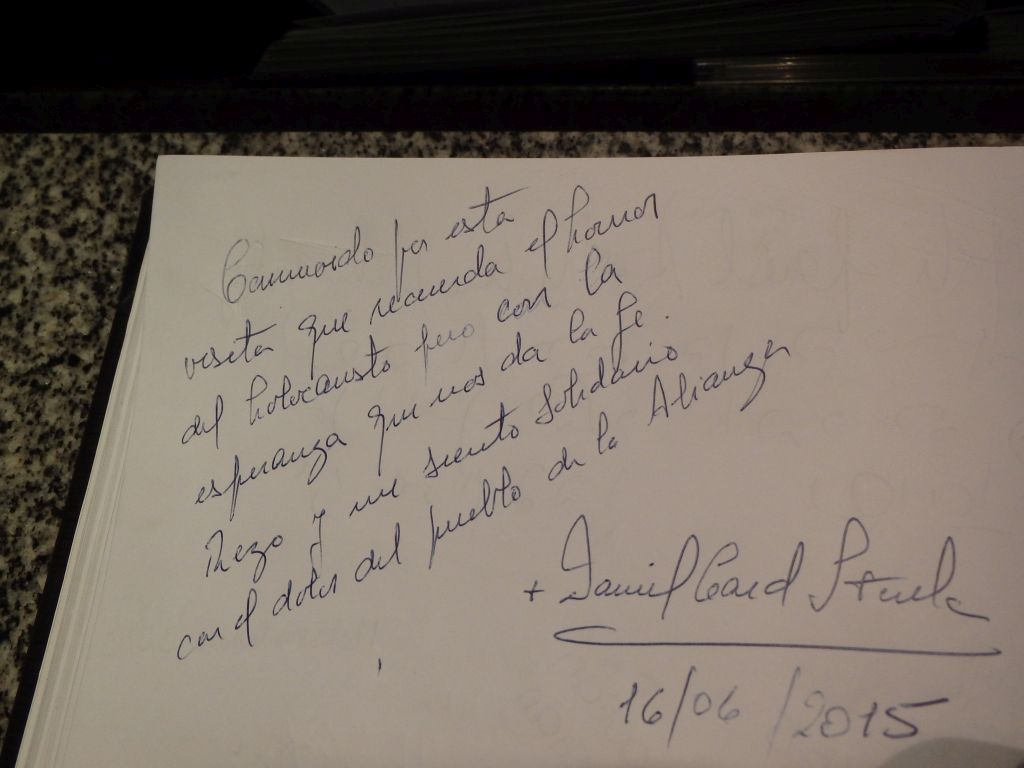 Conmovido por esta
visita que recuerda el horror
del holocausto pero con la
esperanza que nos da la fe.
Rezo y me siento solidario
con el dolor del pueblo de la Alianza
+ Daniel Card Sturla
16/06/2015